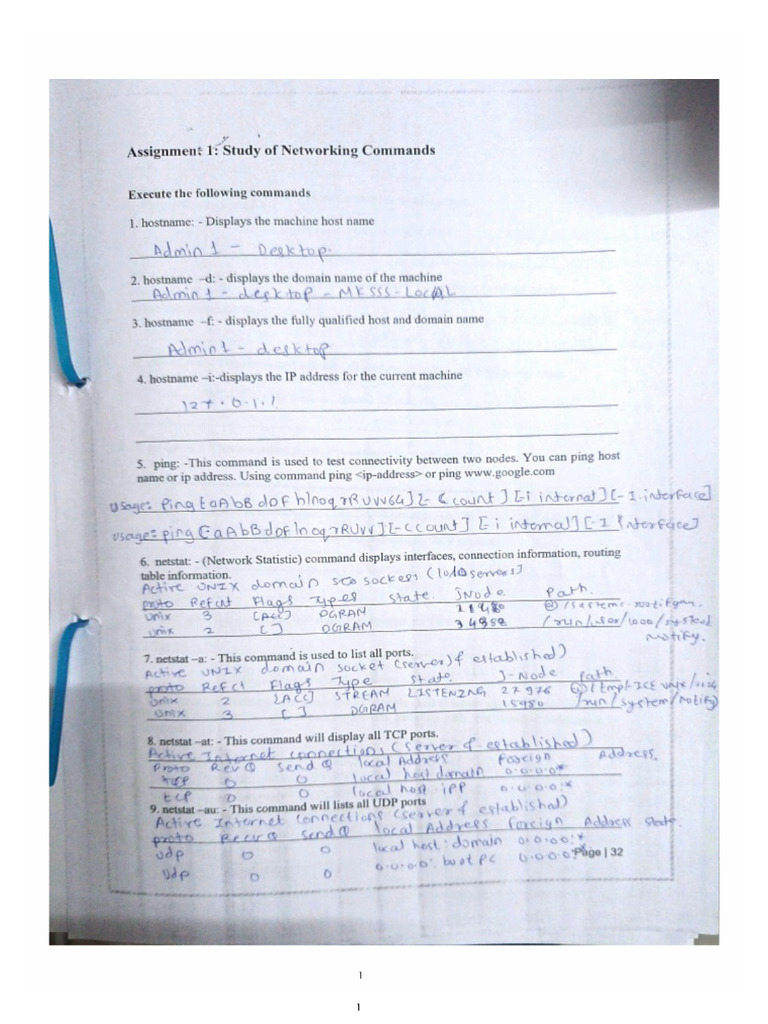 Assignment 1: Study of Networking Commands
Execute the following commands
1. hostname: - Displays the machine host name
Admin1 - Desktop.
2. hostname –d: - displays the domain name of the machine
Admin1 - desktop - MKSSS - Local
3. hostname –f: - displays the fully qualified host and domain name
Admin1 - desktop
4. hostname –i:-displays the IP address for the current machine
127.0.1.1
5. ping: -This command is used to test connectivity between two nodes. You can ping host
name or ip address. Using command ping <ip-address> or ping www.google.com
usage: ping [aAbBdDfhlnoqrRUvv64] [- c count] [-i internal] [-I. interface]
usage: ping [aAbBdDflnoqrRUvv] [-ccount] [-i internal] [-I interface]
6. netstat: - (Network Statistic) command displays interfaces, connection information, routing
table information.
Active UNIX domain sockets (w/o servers]
proto Refcnt Flags Types State. INode Path.
unix 3 [Acc] DGRAM
unix 2 [ ] DGRAM 34958
Notify.
7. netstat –a: - This command is used to list all ports.
Active UNIX domain socket (server) & established)
proto Refct Flags Type State I-Node Path
unix 2 [ACC] STREAM LISTENING 27976
unix 3 [ ] DGRAM 15980 /run/system/notify)
8. netstat –at: - This command will display all TCP ports.
Active Internet connections (server & established)
proto Rev Q Send Q local Address foreign Address.
tcp 0 0 local host domain 0.0.0.0:*
tcp 0 0 local host ipp 0.0.0.0:*
9. netstat –au: - This command will lists all UDP ports
Active Internet connections (server & established)
proto Recv Q send Q local Address foreign Address state.
udp 0 0 local host : domain 0.0.0.0:*
udp 0 0 0.0.0.0: bootpc 0.0.0.0:*
Page | 32
1
1